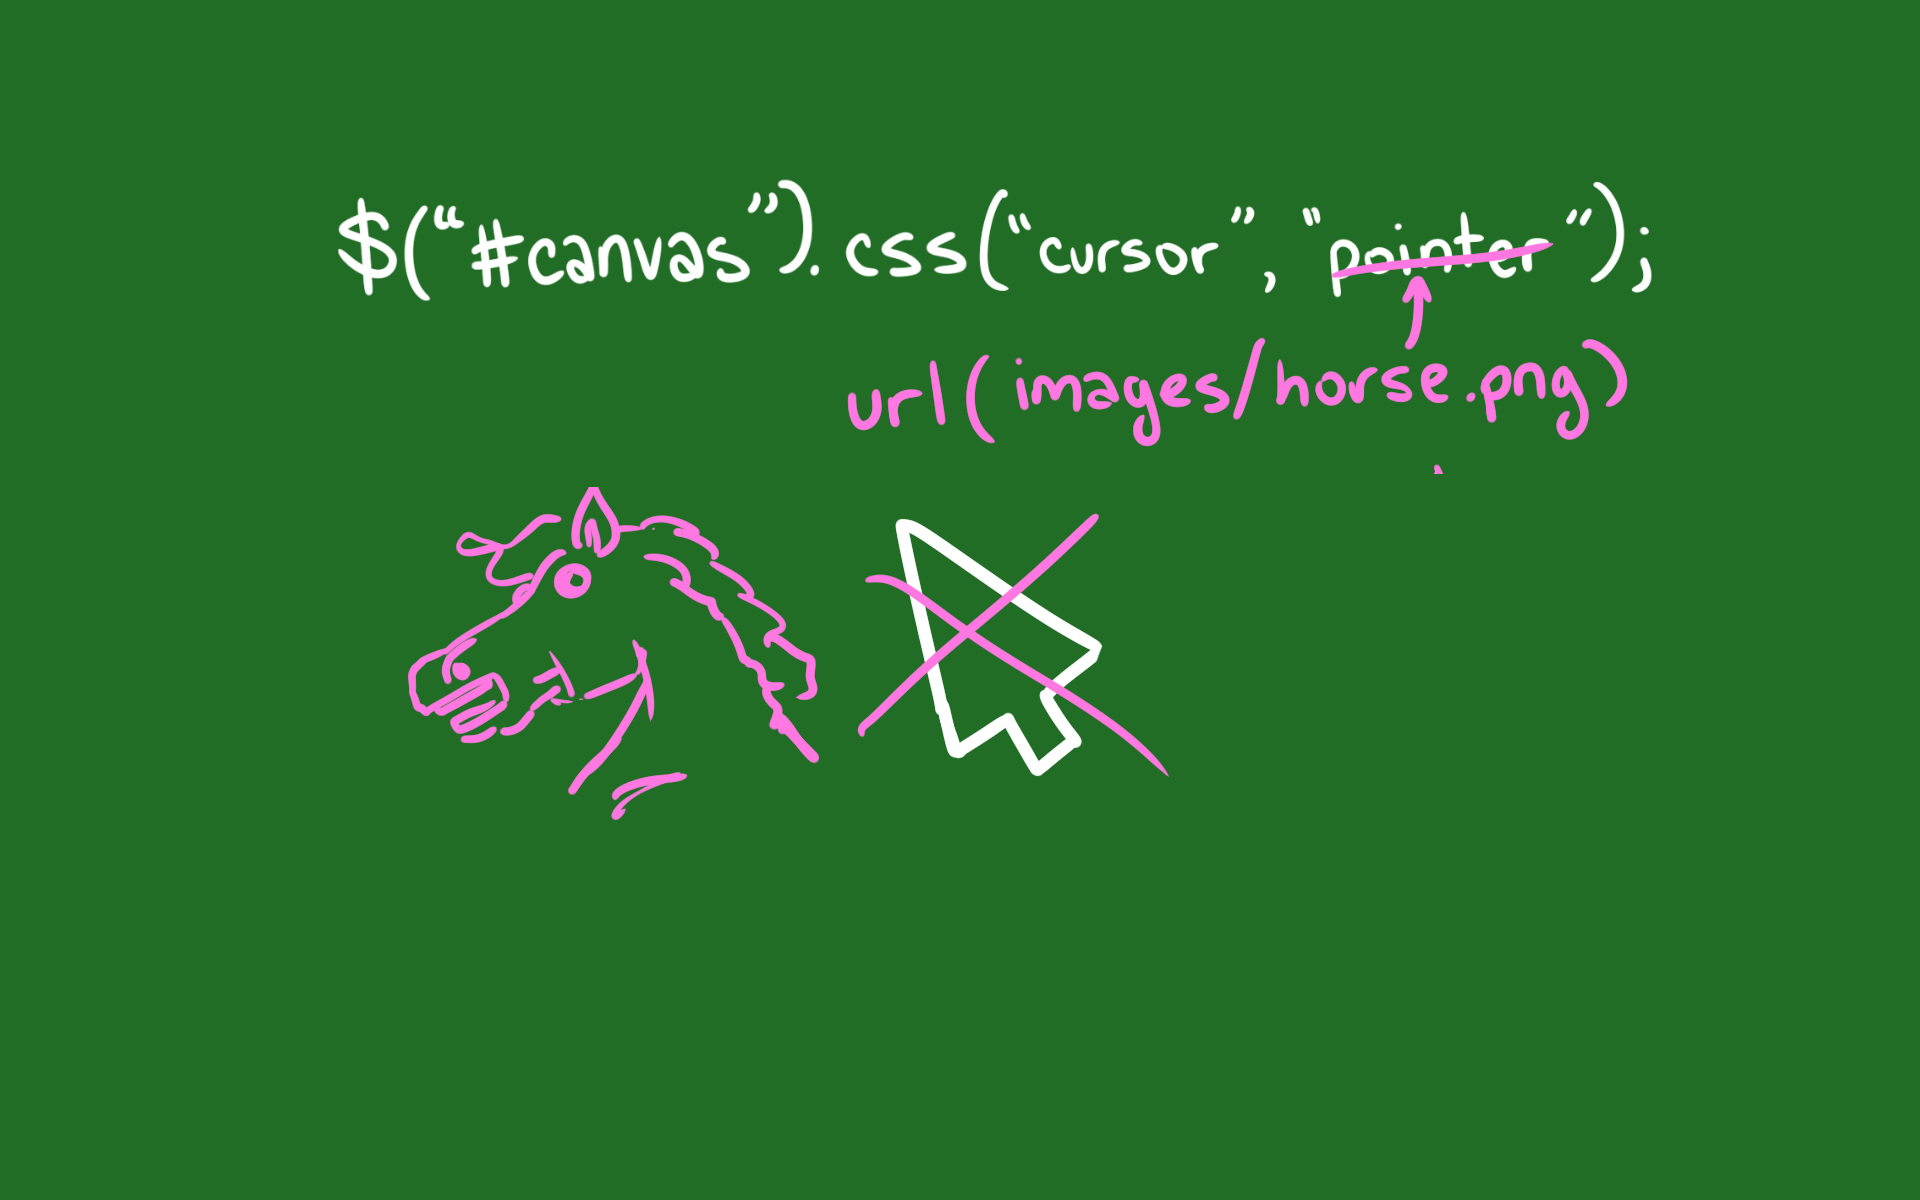 $(“#canvas”).css(“cursor”, “pointer”);
url(images/horse.png)